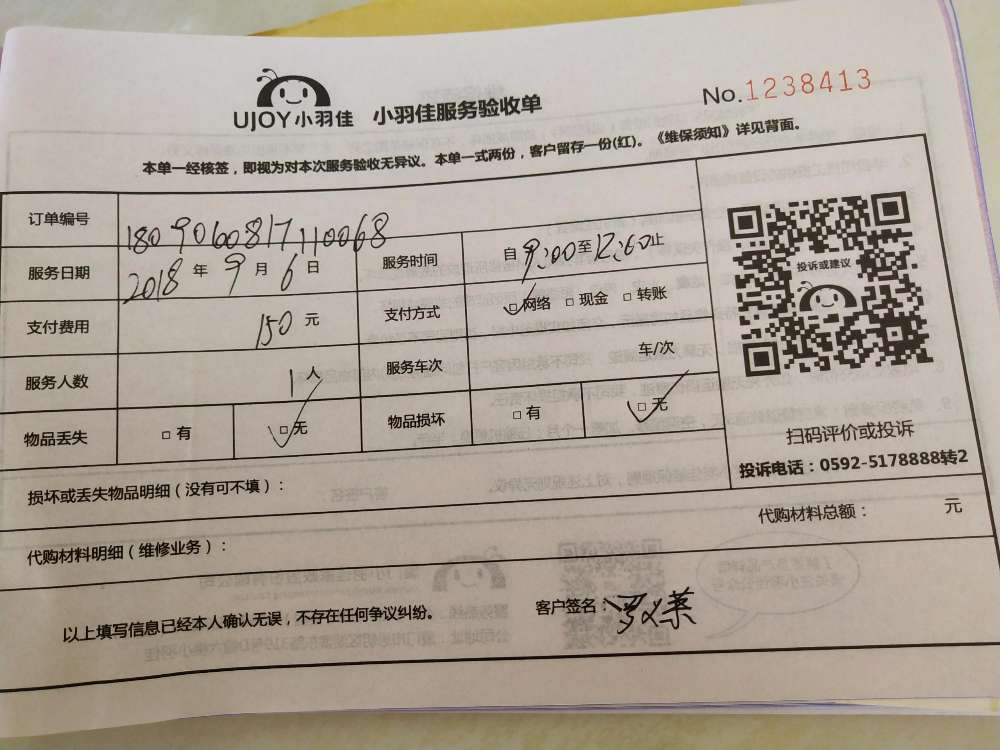 UJOY小羽佳 小羽佳服务验收单
No.1238413
本单一经核签，即视为对本次服务验收无异议。本单一式两份，客户留存一份(红)。《维保须知》详见背面。
订单编号 1809060817110068
服务日期 2018年9月6日 服务时间 自9:00至12:00止
支付费用 150元 支付方式 □网络 □现金 □转账
服务人数 1人 服务车次 车/次
物品丢失 □有 □无 物品损坏 □有 □无
投诉或建议
扫码评价或投诉
投诉电话：0592-5178888转2
损坏或丢失物品明细（没有可不填）：
代购材料明细（维修业务）： 代购材料总额： 元
以上填写信息已经本人确认无误，不存在任何争议纠纷。 客户签名：